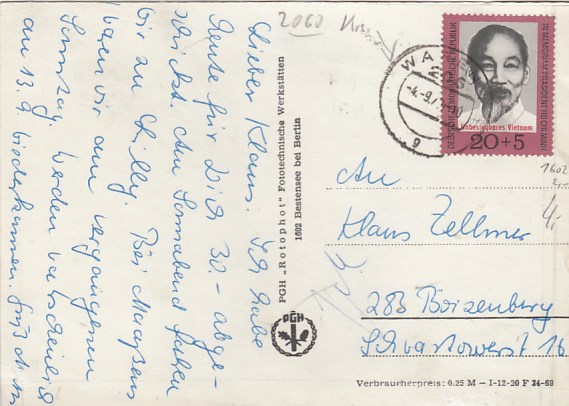 2060
Lieber Klaus. Ich habe
heute für Dich 30.- abge-
schickt. Am Sonnabend fahren
wir zu Lilly. Bei
waren wir am vergangenen
Sonntag. Werden wahrscheinlich
am 13.9. wiederkommen. Gruß
PGH „Rotophot" Fototechnische Werkstätten
1602 Bestensee bei Berlin
PGH
WA
-4.-9.7
9
DEUTSCHE DEMOKRATISCHE REPUBLIK
IN MEMORIAM PRÄSIDENT HO CHI MINH
Unbesiegbares Vietnam
20+5
1602
An
4,-
Klaus Zellmer
283 Boizenburg
Schwartowerst 16
Verbraucherpreis: 0.25 M – I-12-29 F 34-69